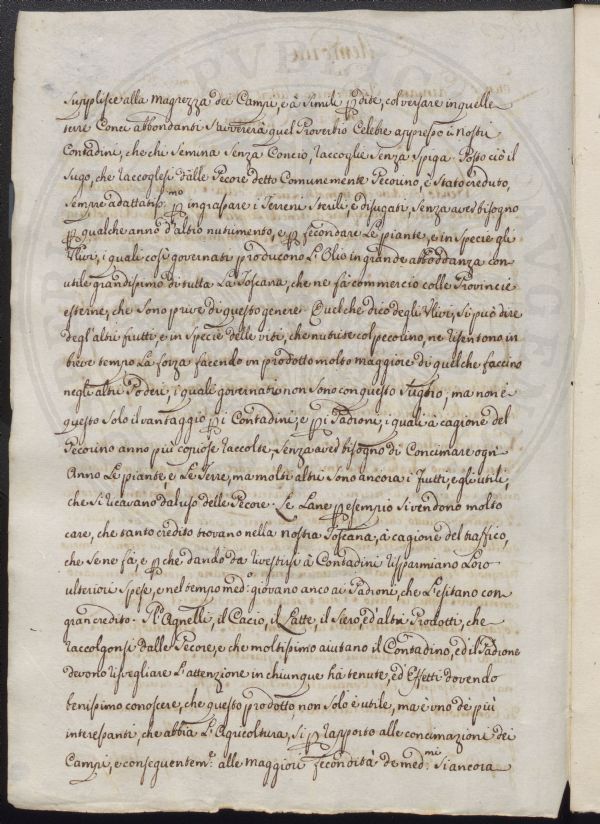 supplisce alla magrezza dei Campi, e à simile pdite, col versare in quelle
terre Conci abbondanti s'avvererà quel Proverbio Celebre appresso i nostri
Contadini, che chi semina senza Concio, raccoglie senza spiga. Posto ciò il
sugo, che raccoglesi dalle Pecore detto Comunemente Pecorino, è stato creduto,
sempre adattatissmo p ingrassare i Terreni sterili e disugati, senza aver bisogno
p qualche anno d'altro nutrimento, e p fecondare Le piante, e in specie gli
Ulivi, i quali così governati producono L'Olio in grande abbondanza con
utile grandissimo di tutta La Toscana, che ne fà commercio colle Provincie
esterne, che sono prive di questo genere. Quel che dico degli Ulivi, si può dire
degl'altri frutti, e in specie delle viti, che nutrite col pecorino, ne risentono in
breve tempo La forza facendo un prodotto molto maggiore di quel che faccino
negli altri Poderi, i quali governati non sono con questo ; ma non è
questo solo il vantaggio p i Contadini, e p i Padroni, i quali a cagione del
Pecorino anno più copiose raccolte, senza aver bisogno di Concimare ogni
Anno Le piante, e Le Terre, ma molti altri sono ancora i frutti, e gli utili,
che si ricavano dal uso delle Pecore. Le Lane p esempio si vendono molto
care, che tanto credito trovano nella nostra Toscana, à cagione del traffico,
che se ne fà, e p che dando da vestirsi à Contadini risparmiano Loro
ulteriori spese, e nel tempo medo giovano anco ai Padroni, che L'esitano con
gran credito. Gl'Agnelli, il Cacio, il Latte, il siero, ed altri Prodotti, che
raccolgonsi dalle Pecore, e che moltissimo aiutano il Contadino, ed il Padrone
devono risvegliare L'attenzione in chiunque hà tenute, ed Effetti dovendo
benissimo conoscere, che questo prodotto, non solo è utile, ma è uno de più
interessanti, che abbia L'Agricoltura, si p rapporto alle concimazioni dei
Campi, e conseguenteme alle maggiori fecondità de medmi si ancora